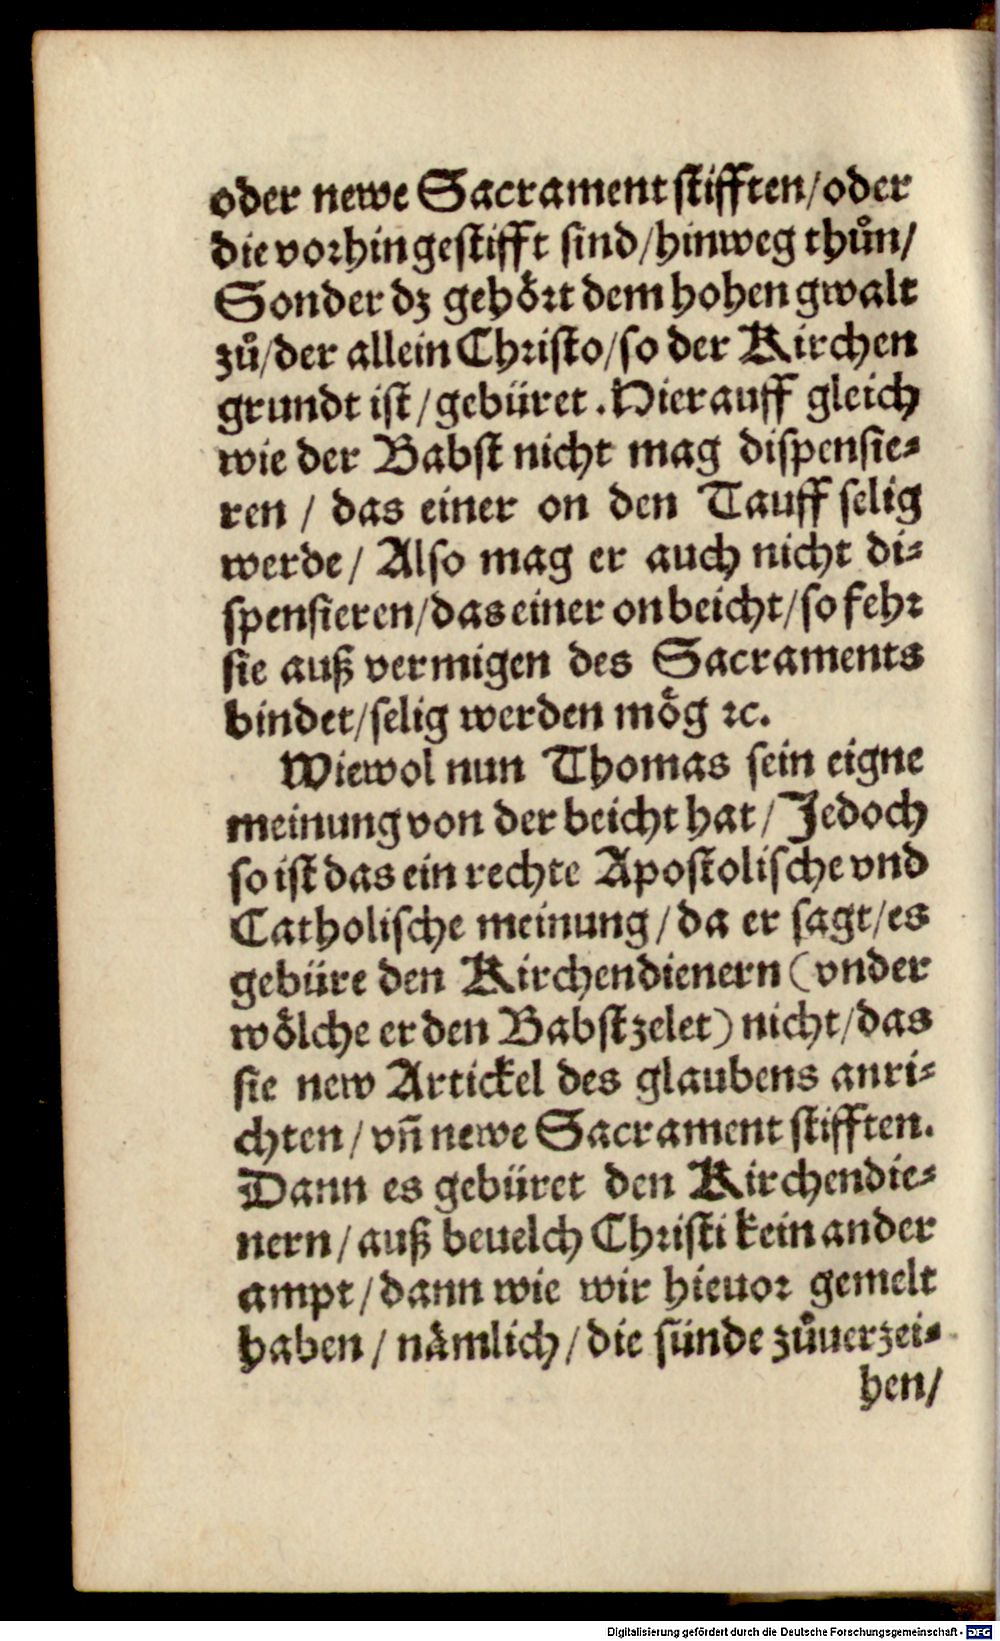 oder newe Sacrament stifften/oder
die vorhin gestifft sind/hinweg thůn/
Sonder dz gehört dem hohen gwalt
zů/der allein Christo/so der Kirchen
grundt ist/gebüret. Hierauff gleich
wie der Babst nicht mag dispensie-
ren / das einer on den Tauff selig
werde/ Also mag er auch nicht di-
spensieren/das einer on beicht/so fehr
sie auß vermigen des Sacraments
bindet/selig werden mög ꝛc.
Wiewol nun Thomas sein eigne
meinung von der beicht hat/ Jedoch
so ist das ein rechte Apostolische vnd
Catholische meinung/da er sagt/es
gebüre den Kirchendienern (vnder
wölche er den Babst zelet) nicht/das
sie new Artickel des glaubens anri-
chten/ vñ newe Sacrament stifften.
Dann es gebüret den Kirchendie-
nern/auß beuelch Christi kein ander
ampt/dann wie wir hieuor gemelt
haben/ nämlich/die sünde zůuerzei-
hen/
Digitalisierung gefördert durch die Deutsche Forschungsgemeinschaft - DFG